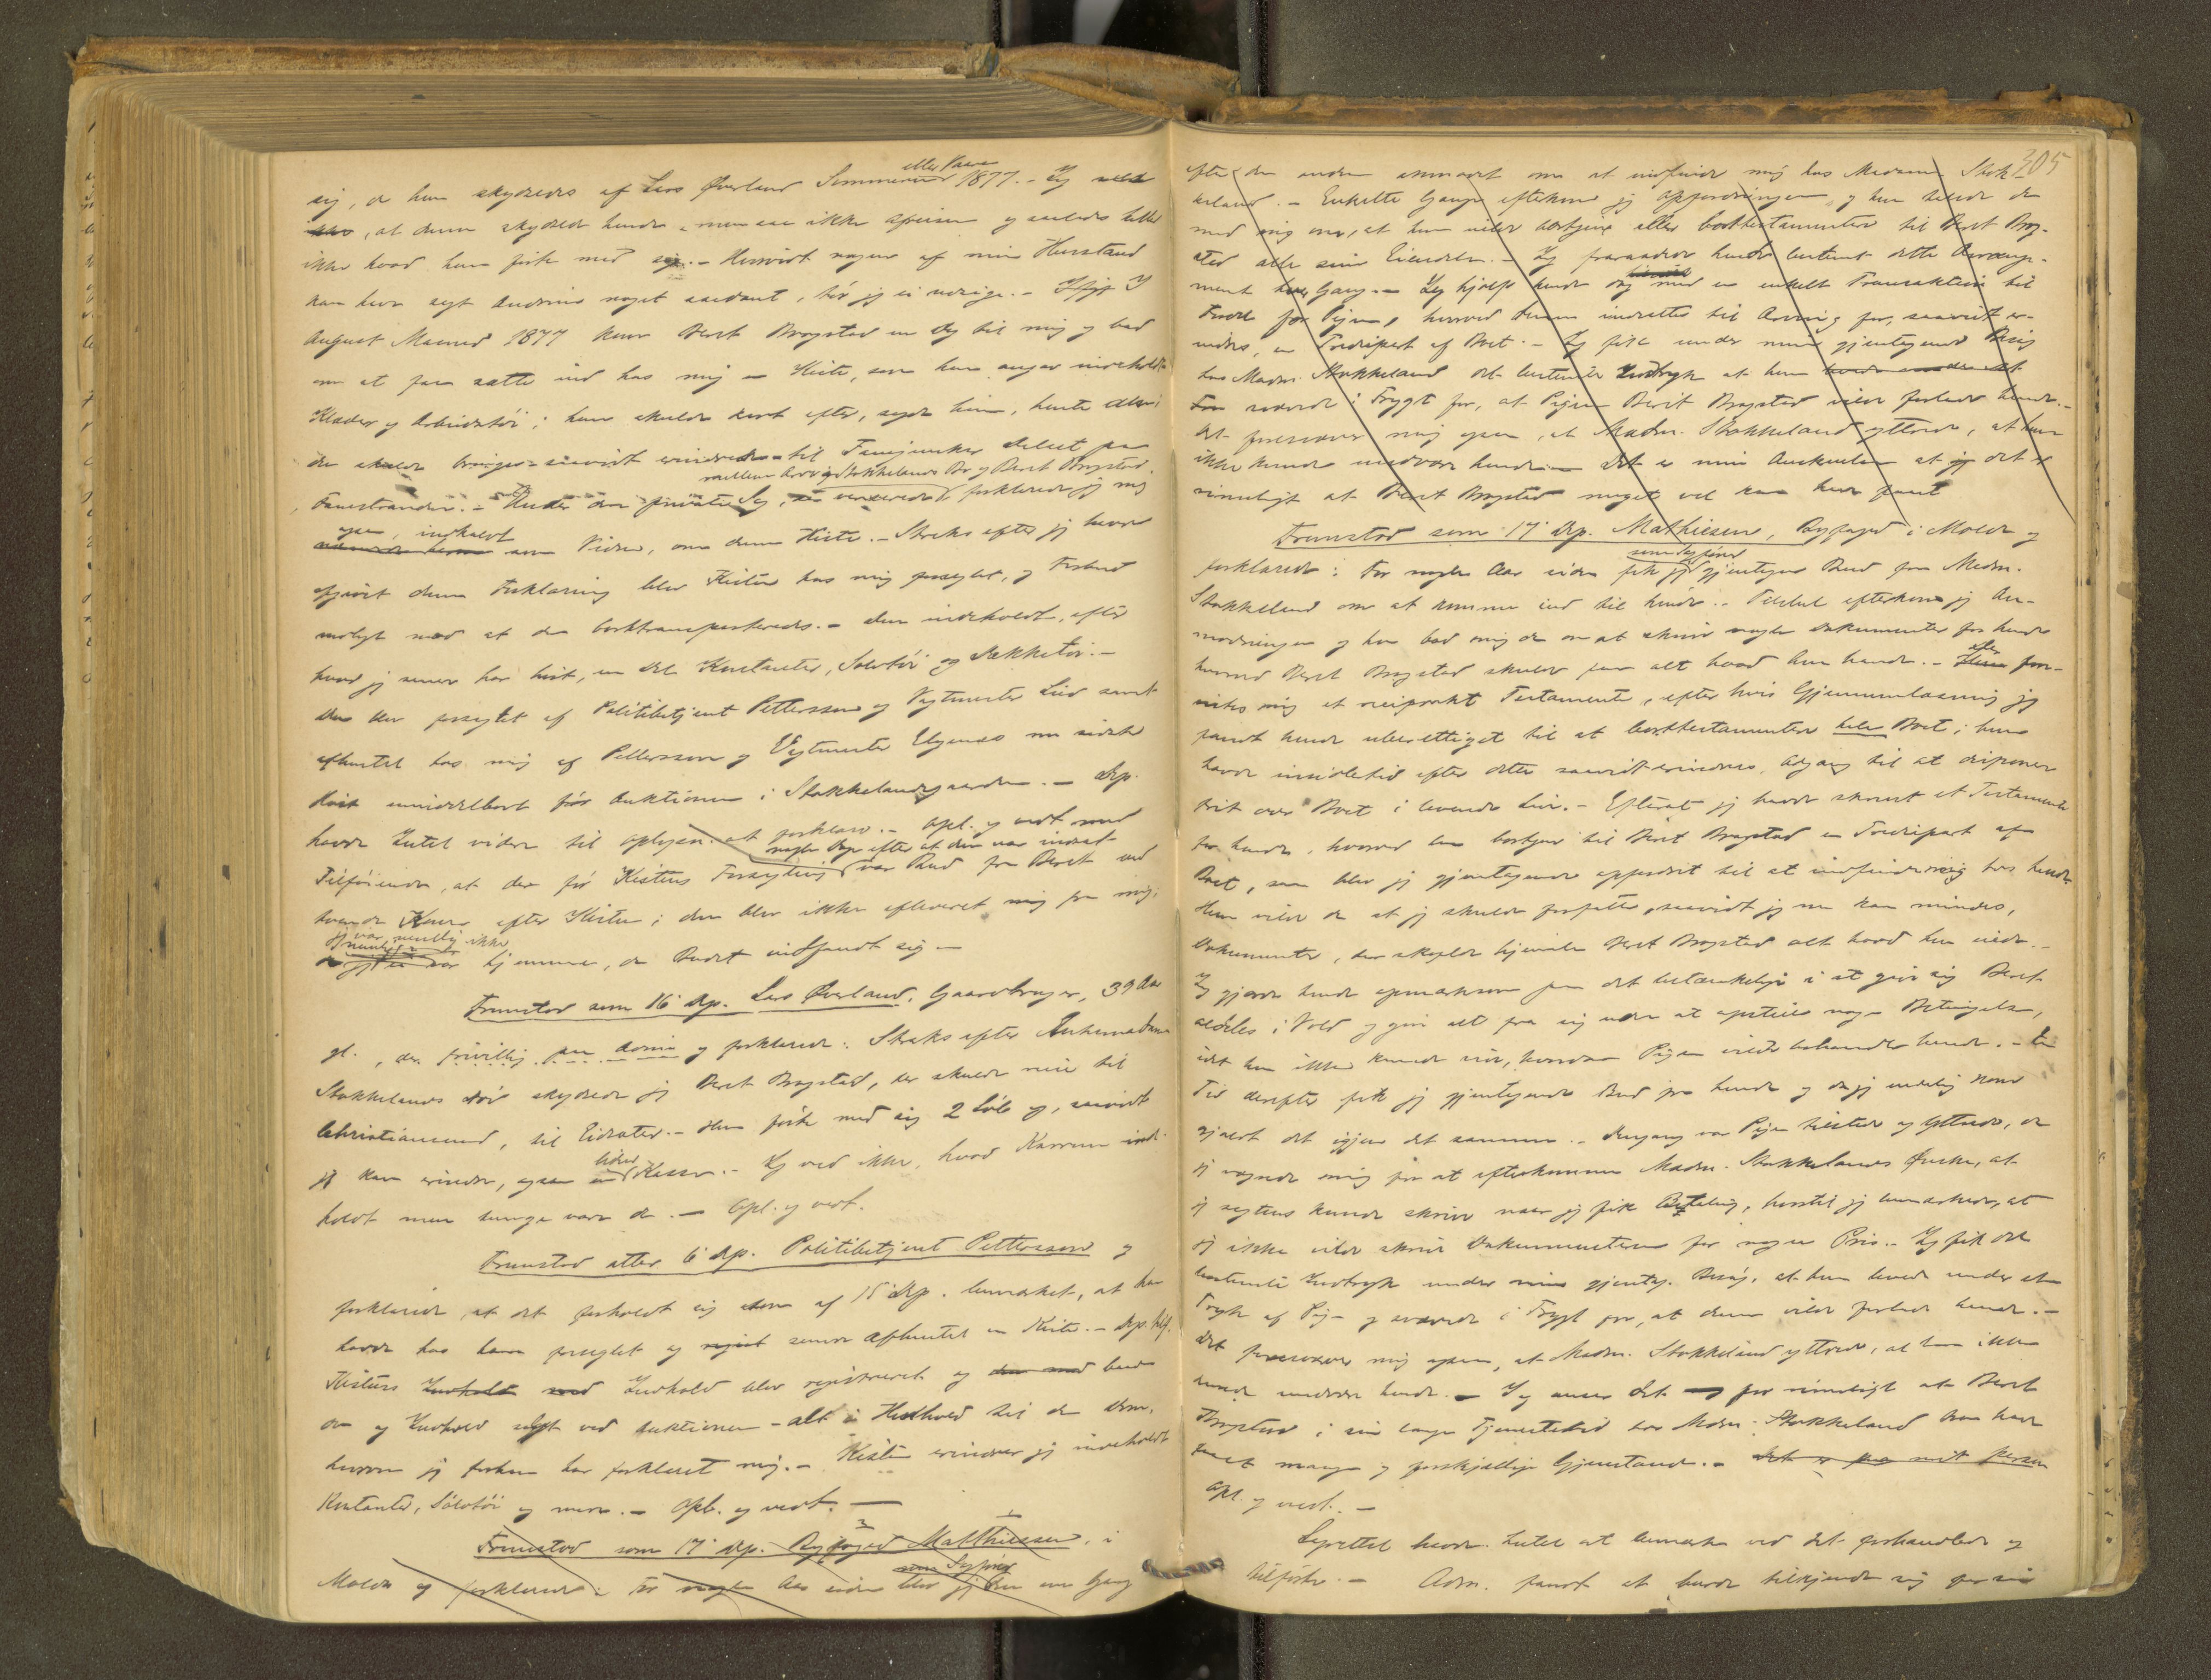 eller Vaaren
sig, da hun skydsedes af Lars Øverland Sommeren 1877. - Jeg
, at denne skydsede hende, men saa ikke og saaledes heller
ikke hvad hun fik med sig. - Hvorvidt nogen af min Husstand
kan have sagt noget saadant, tør jeg ei nægte. - I
August Maaned 1877 kom Berit Brogstad en Dag til mig og bad
om at faa sætte ind hos mig en Kiste, som hun angav indeholdt
Klæder og Arbeidstøi; hun skulde kort efter, sagde hun, hente den;
den skulde bringes - saavidt erindres - til
mellem Arving Stokkelands Bo og Berit Brogstad.
Fanestranden. - Under den private Sag, forklarede jeg mig
ogsaa, indkaldt
som Vidne, om denne Kiste. - Straks efter jeg havde
afgivet denne Forklaring blev Kisten hos mig forseglet, og Forbud
nedlagt mod at den borttransporteredes. - Den indeholdt, efter
hvad jeg senere har hørt, en Del Kontanter, Sølvtøi og Dækketøi. -
Den blev forseglet af Politibetjent Pettersen og Vagtmester Lied samt
afhentet hos mig af Pettersen og Vagtmester Elgenæs nu sidste
Høst umiddelbart før Auktionen i Stokkelandsgaarden. - Dep.
havde Intet videre til Oplysn. at forklare. - Opl. og vedt. med
nogle Dage efter at den var indsat
Tilføiende, at der før Kistens Forsegling var Bud fra Berit ved
Kone efter Kisten; den blev ikke afleveret mig fra mig;
jeg var nemlig ikke
hjemme, da Budet indfandt sig -
Fremstod som 16' Dep. Lars Øverland, Gaardbruger, 39 Aar
gl., der frivillig og forklarede: Straks efter Enkemadam
Stokkelands Død skydsede jeg Berit Brogstad, der skulde reise til
Christiansund, til Eidsøter. - Hun førte med sig 2 Løb og, saavidt
liden
jeg kan erindre, ogsaa en Kasse. - Jeg ved ikke, hvad Karrene inde-
holdt men tunge vare de. - Opl. og vedt.
Fremstod atter 6' Dep. Politibetjent Pettersen og
forklarede at det forholdt sig som af 15' Dep. bemærket, at han
havde hos ham forseglet og senere afhentet en Kiste. - Dep.
Kistens Indhold blev registreret og
og Indhold solgt ved Auktionen - alt i Henhold til de Dom.
hvorom jeg forhen har forklaret mig. - Kisten erindrer jeg indeholdt
Kontanter, Sølvtøi og mere. - Opl. og vedt. -
Fremstod som 17' Dep. Byfoged Matthiesen, i
som Sagfører
Molde og forklarede: For nogle Aar siden blev jeg den ene Gang
305
efter den anden anmodet om at indfinde mig hos Madam Stok-
keland. - Enkelte Gange efterkom jeg Opfordringen, og hun talede da
med mig om, at hun vilde bortgive eller borttestamentere til Berit Brog-
stad alle sine Eiendele. - Jeg fraraadede hende bestemt dette Arrange-
ment hver Gang. - Jeg hjalp hende dog med en enkelt Transaktion til
Fordel for Pigen, hvorved denne indsattes til Arving for, saavidt er-
indres, en Trediepart af Boet. - Jeg fik under mine gjentagende Besøg
hos Madm. Stokkeland det bestemte Indtryk at hun
svævede i Frygt for, at Pigen Berit Brogstad vilde forlade hende. -
Det foresvæver mig ogsaa, at Madm. Stokkeland yttrede, at hun
ikke kunde undvære hende. - Det er min Anskuelse at det er
rimeligt at Berit Brogstad meget vel kan have faaet
Fremstod som 17' Dep. Mathiesen, Byfoged i Molde og
som Sagfører
forklarede: For nogle Aar siden fik jeg gjentagne Bud fra Madm.
Stokkeland om at komme ind til hende. - Tilslut efterkom jeg An-
modningen og hun bad mig da om at skrive nogle Dokumenter for hende
hvorved Berit Brogstad skulde faa alt hvad hun havde. - Hun fore-
vistes mig et reciprokt Testamente, efter hvis Gjennemlæsning jeg
fandt hende uberettiget til at borttestamentere hele Boet; hun
havde imidlertid efter dette saavidt erindres, Adgang til at disponere
frit over Boet i levende Live. - Efterat jeg havde skrevet et Testamente
for hende, hvorved hun bortgav til Berit Brogstad en Trediepart af
Boet, som blev jeg gjentagende opfordret til at indfinde mig hos hende
Hun vilde da at jeg skulde forfatte, saavidt jeg nu kan mindes,
Dokumenter, der skulde hjemle Berit Brogstad alt hvad hun eiede. -
Jeg gjorde hende opmærksom paa det betænkelige i at give sig Berit
aldeles i Vold og give alt fra sig uden at opstille nogen Betingelse,
idet hun ikke kunde vide, hvordan Pigen vilde behandle hende. - En
Tid derefter fik jeg gjentagende Bud fra hende og da jeg endelig kom
gjaldt det igjen det samme. - Dengang var Pigen tilstede og yttrede, da
jeg vægrede mig for at efterkomme Madm. Stokkelands Ønske, at
jeg sagtens kunde skrive naar jeg fik Betaling, hvortil jeg bemærkede, at
jeg ikke vilde skrive Dokumenterne for nogen Pris. - Jeg fik det
bestemte Indtryk under mine gjentag. Besøg, at hun levede under et
Tryk af Pigen og svævede i Frygt for, at denne vilde forlade hende. -
Det foresvæver mig ogsaa, at Madm. Stokkeland yttrede, at hun ikke
kunde undvære hende. - Jeg anser det for rimeligt at Berit
Brogstad i sin lange Tjenestetid hos Madm. Stokkeland kan have
faaet mange og forskjellige Gjenstande. - Det er paa mit
Opl. og vedt. -
Lagrettet havde Intet at bemærke ved det forhandlede og
tilførte. - Adm. fandt at burde tilkjende sig for sin